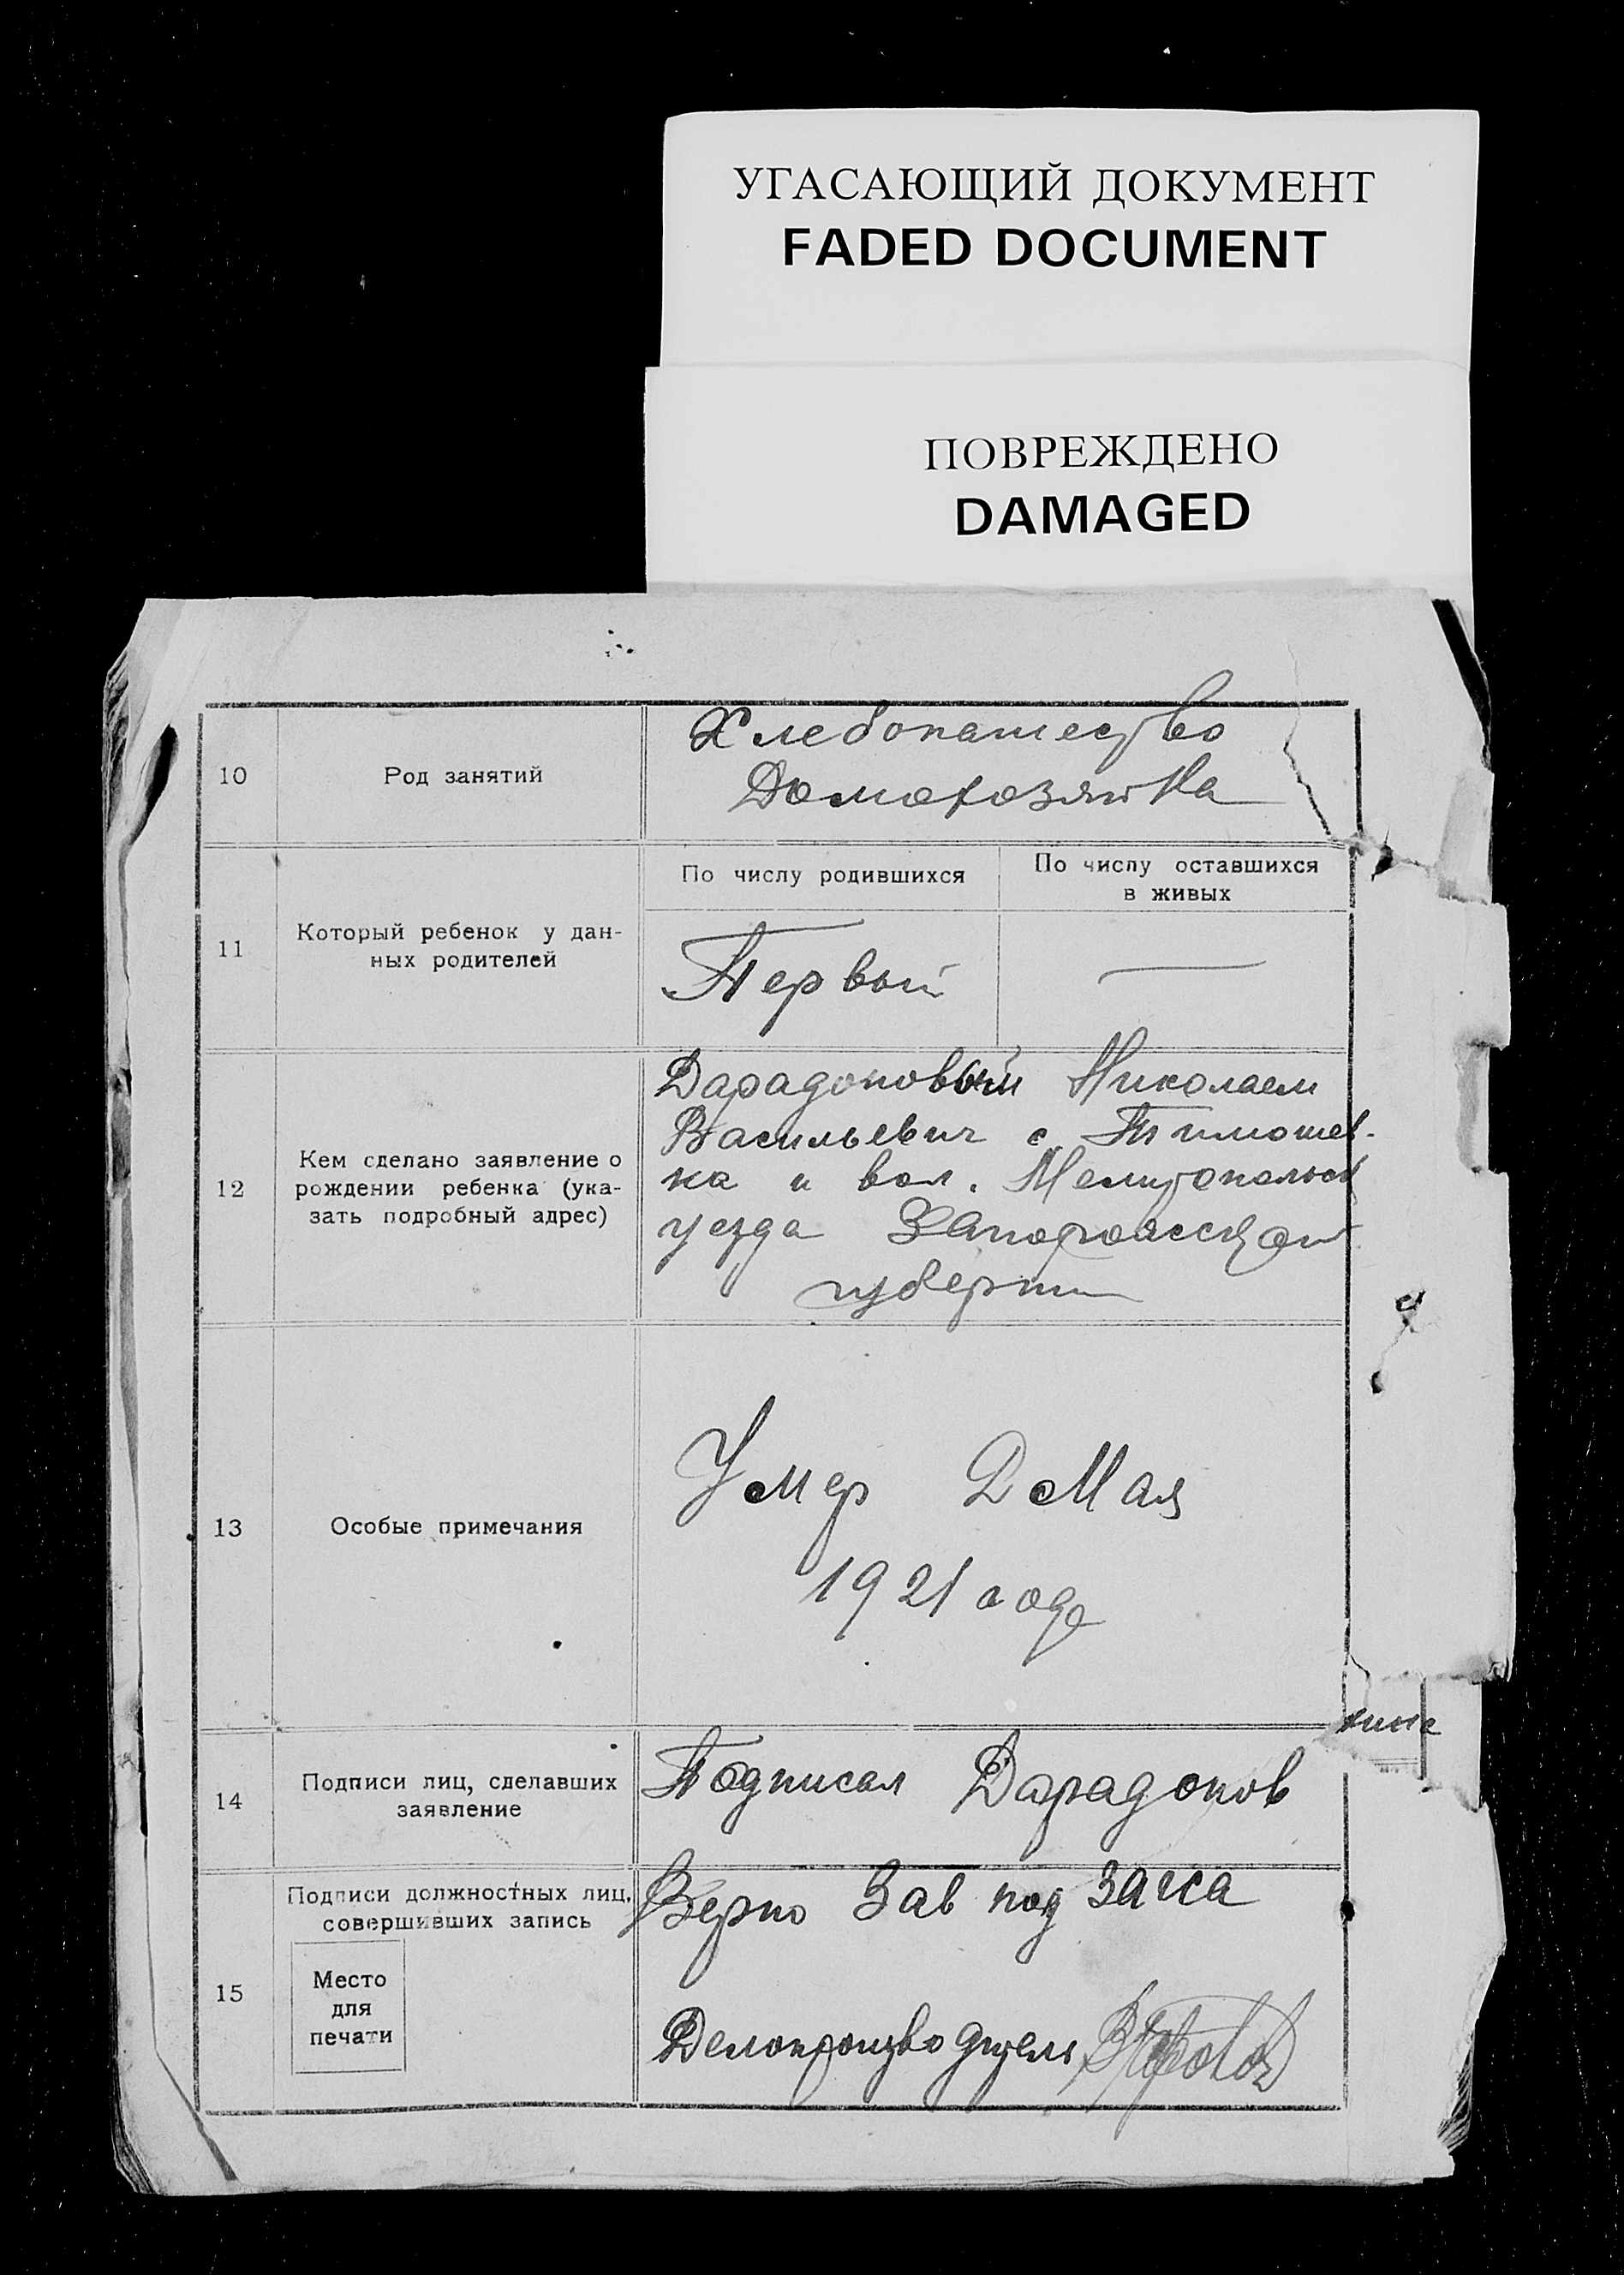 УГАСАЮЩИЙ ДОКУМЕНТ
FADED DOCUMENT
ПОВРЕЖДЕНО
DAMAGED
10
Род занятий
Хлебопашество
Домохозяйка
11
Который ребенок у дан-
ных родителей
По числу родившихся
Первый
По числу оставшихся
в живых
—
12
Кем сделано заявление о
рождении ребенка (ука-
зать подробный адрес)
Дарадоновым Николаем
Васильевич с. Тимошев-
ка и вол. Мелитопольск
уезда Запорожской
губернии
13
Особые примечания
Умер 2 Мая
1921 года
14
Подписи лиц, сделавших
заявление
Подписал Дарадонов
15
Подписи должностных лиц,
совершивших запись
Место
для
печати
Верно Зав под Загса
Делопроизводитель